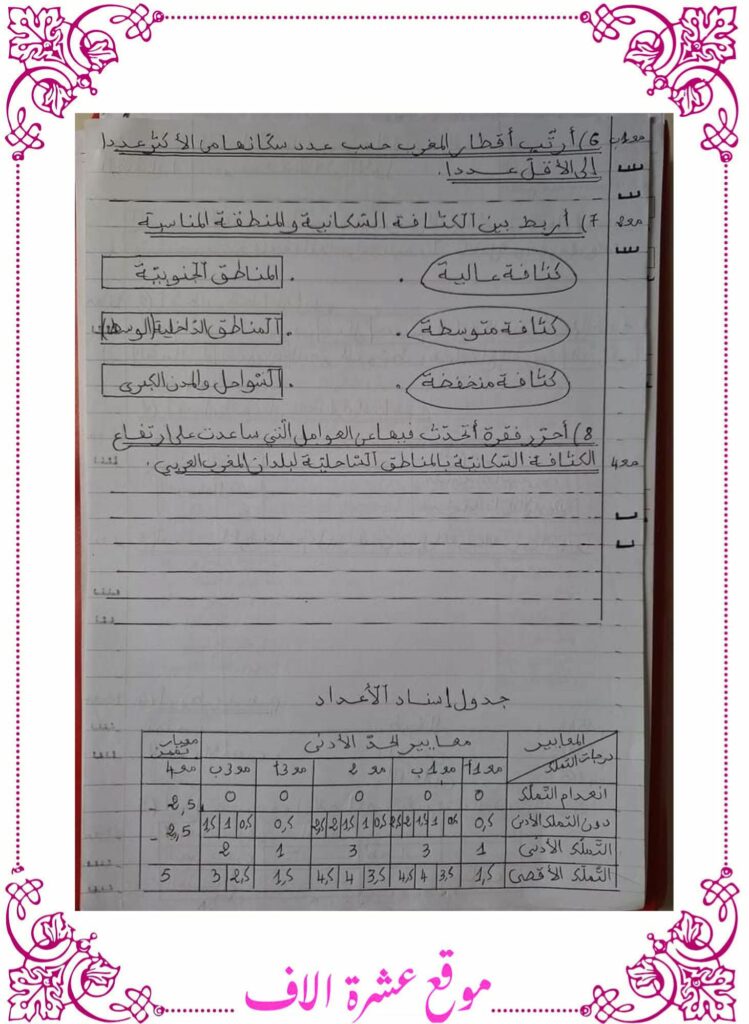 مع1ب
6) أرتّب أقطار المغرب حسب عدد سكّانها من الأكثر عددا
إلى الأقلّ عددا.
مع2
7) أربط بين الكثافة السّكانية والمنطقة المناسبة
كثافة عالية . . المناطق الجنوبيّة
كثافة متوسطة . . المناطق الدّاخلية (الوسطى)
كثافة منخفضة . . السّواحل والمدن الكبرى
8) أحرّر فقرة أتحدّث فيها عن العوامل الّتي ساعدت على ارتفاع
مع4
الكثافة السّكانيّة بالمناطق السّاحليّة لبلدان المغرب العربي.
جدول إسناد الأعداد
المعايير معايير الحدّ الأدنى معيار تميّز
درجات التملّك مع1أ مع1ب مع2 مع3أ مع3ب مع4
انعدام التّملّك 0 0 0 0 0 2,5
دون التملّك الأدنى 0,5 0,5 1 1,5 2 2,5 0,5 1 1,5 2 2,5 0,5 0,5 1 1,5 2,5
التّملّك الأدنى 1 3 3 1 2
التّملّك الأقصى 1,5 3,5 4 4,5 3,5 4 4,5 1,5 2,5 3 5
موقع عشرة الاف